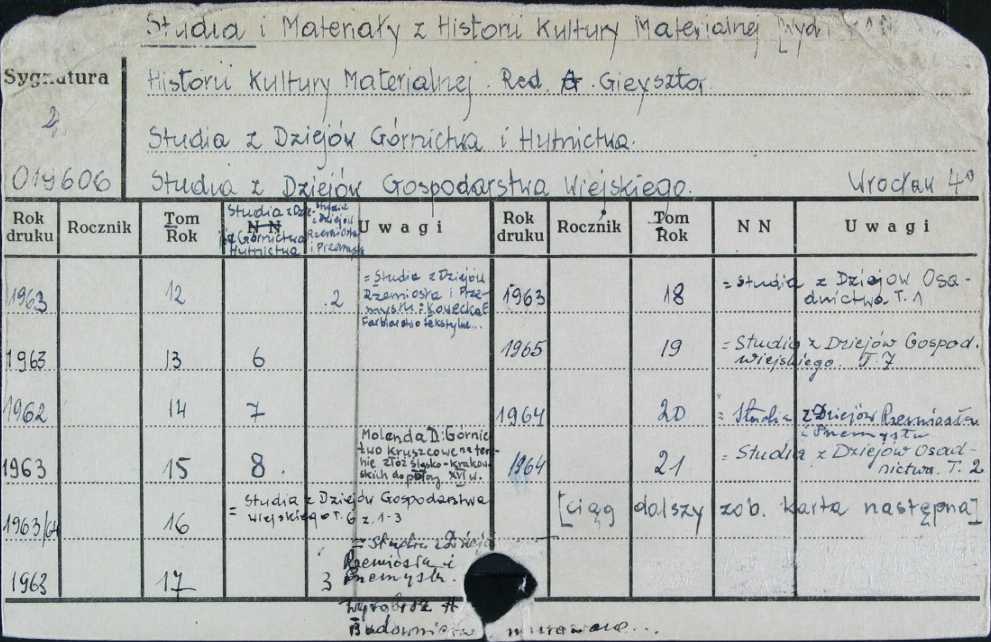 Studia i Materiały z Historii Kultury Materialnej [Wyd
Sygnatura
Historii Kultury Materialnej. Red. A. Gieysztor.
2,
Studia z Dziejów Górnictwa i Hutnictwa.
019606
Studia z Dziejów Gospodarstwa Wiejskiego. Wrocław 4°
Rok druku Rocznik Tom Rok N N Studia z Dzie- Górnictwa Hutnictwa Studia z Dziejów Rzemiosła i Przemysłu U w a g i Rok druku Rocznik Tom Rok N N U w a g i
1963 12 2 = Studia z Dziejów
Rzemiosła i Prze-
mysłu: Kowecka E
Farbiarstwo tekstylne...
1963 13 6
1962 14 7
1963 15 8. Molenda D: Górnic
two kruszcowe na tere-
nie złóż śląsko-krakow.
skich do połowy XVI w.
1963/64 16 = Studia z Dziejów Gospodarstwa
wiejskiego T. 6 z. 1-3
1963 17 3 = Studia z Dziejó
Rzemiosła i
Przemysłu.
Wyrobisz A
Budownictwo murowane...
1963 18 = Studia z Dziejów Osa-
dnictwa. T. 1
1965 19 = Studia z Dziejów Gospod.
wiejskiego. T. 7
1964 20 = Studia z Dziejów Rzemiosła
i Przemysłu
1964 21 = Studia z Dziejów Osad-
nictwa. T. 2
[ciąg dalszy zob. karta następna]